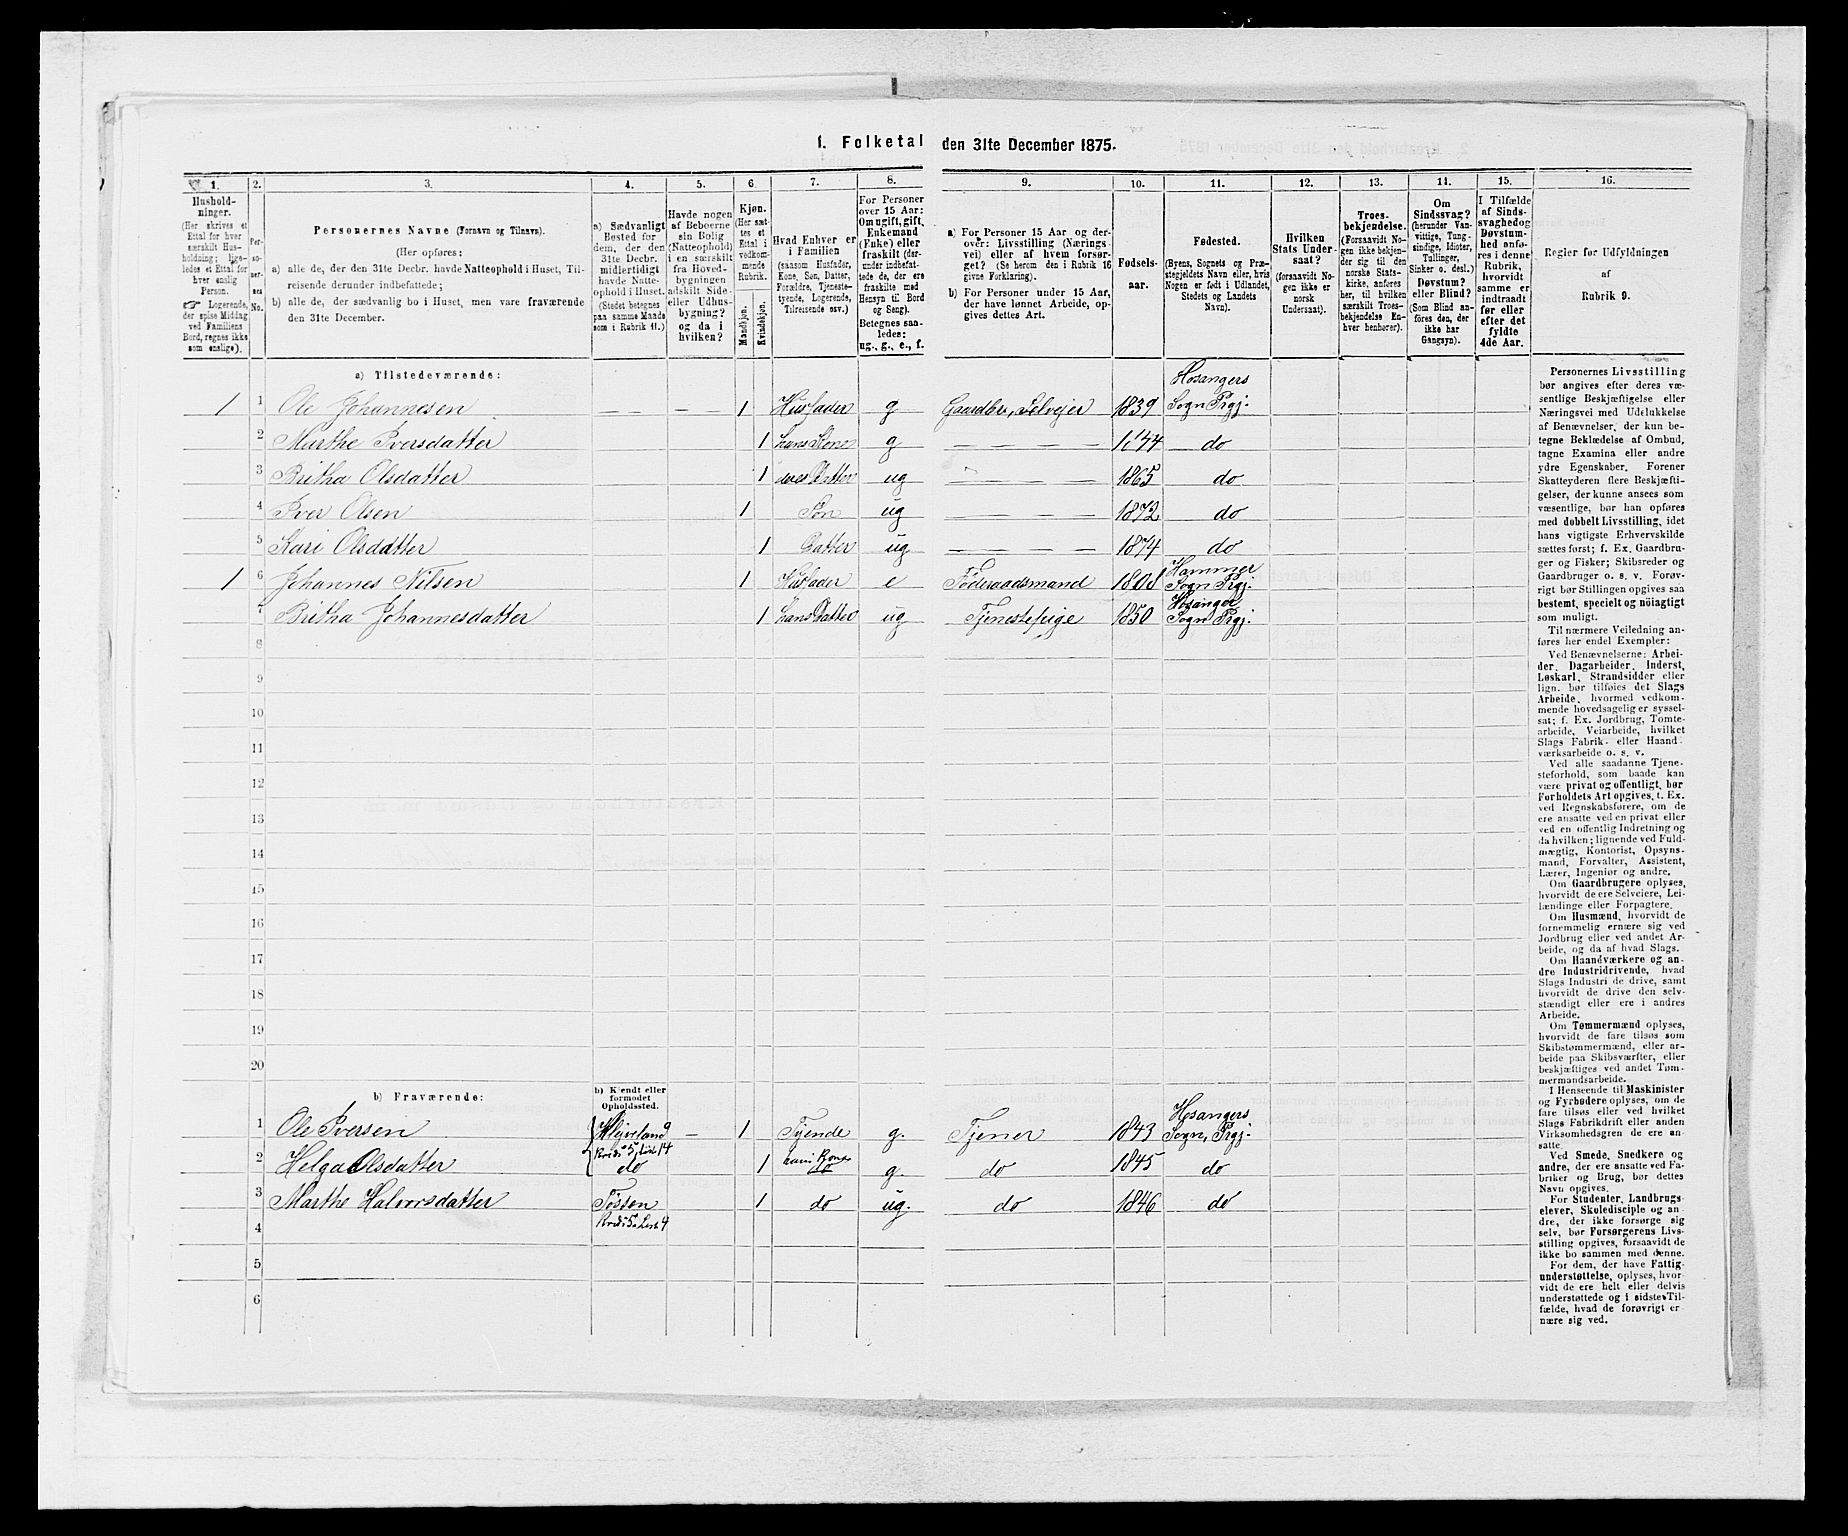 1. Folketal den 31te December 1875.
1. 2. 3. 4. 5. 6. 7. 8. 9. 10. 11. 12. 13. 14. 15. 16.
Hushold-
ninger.
(Her skrives et
Ettal for hver
særskilt Hus-
holdning; lige-
ledes et Ettal for
hver enslig
Person.
☞ Logerende,
der spise Middag
ved Familiens
Bord, regnes ikke
som enslige).
Per-
so-
ner-
nes
No.
Personernes Navne (Fornavn og Tilnavn).
(Her opføres:
a) alle de, der den 31te Decbr. havde Natteophold i Huset, Til-
reisende derunder indbefattede;
b) alle de, der sædvanlig bo i Huset, men vare fraværende
den 31te December.
a) Sædvanligt
Bosted for
dem, der den
31te Decbr.
midlertidigt
havde Natte-
ophold i Huset.
(Stedet betegnes
paa samme Maade
som i Rubrik 11.)
Havde nogen
af Beboerne
sin Bolig
(Natteophold)
i en særskilt
fra Hoved-
bygningen
adskilt Side-
eller Udhus-
bygning?
og da i
hvilken?
Kjøn.
(Her sæt-
tes et
Ettal i
vedkom-
mende
Rubrik.
Mandkjøn.
Kvindekjøn.
Hvad Enhver er
i Familien
(saasom Husfader,
Kone, Søn, Datter,
Forældre, Tjeneste-
tyende, Logerende,
Tilreisende osv.)
For Personer
over 15 Aar:
Om ugift, gift,
Enkemand
(Enke) eller
fraskilt (der-
under indbefat-
tede de, der ere
fraskilte med
Hensyn til Bord
og Seng).
Betegnes saa-
ledes:
ug., g., e., f.
a) For Personer 15 Aar og der-
over: Livsstilling (Nærings-
vei) eller af hvem forsør-
get? (Se herom den i Rubrik 16
givne Forklaring).
b) For Personer under 15 Aar,
der have lønnet Arbeide, op-
gives dettes Art.
Fødsels-
aar.
Fødested.
(Byens, Sognets og Præ-
stegjeldets Navn eller, hvis
Nogen er født i Udlandet,
Stedets og Landets
Navn).
Hvilken
Stats Under-
saat?
(forsaavidt No-
gen ikke er
norsk
Undersaat).
Troes-
bekjendelse.
(Forsaavidt No-
gen ikke bekjen-
der sig til den
norske Stats-
kirke, anføres
her, til hvilken
særskilt Troes-
bekjendelse En-
hver henhører).
Om
Sindssvag?
(herunder Van-
vittige, Tung-
sindige, Idioter,
Tullinger,
Sinker o. desl.)
Døvstum?
eller Blind?
(Som Blind an-
føres den, der
ikke har
Gangsyn).
I Tilfælde
af Sinds-
svaghed og
Døvstum-
hed anfø-
res i denne
Rubrik,
hvorvidt
samme er
indtraadt
før eller
efter det
fyldte
4de Aar.
Regler før Udfyldningen
af
Rubrik 9.
a) Tilstedeværende:
Hosangers
1 1 Ole Johannesen — — — — 1 Husfader g Gaardbr., Selvejer 1839 Sogn Prgj.
2 Marthe Iversdatter 1 hans Kone g — — — — 1844 do
3 Britha Olsdatter 1 deres Datter ug — — — 1865 do
4 Iver Olsen 1 Søn ug — — — — 1872 do
5 Kari Olsdatter 1 Datter ug — — — — 1874 do
Hammer
1 6 Johannes Nilsen 1 Husfader e Føderaadsmand 1808 Sogn Prgj.
Hosanger
7 Britha Johannesdatter 1 hans Datter ug Tjenestepige 1850 Sogn Prgj.
8
9
10
11
12
13
14
15
16
17
18
19
20
b) Fraværende:
b) Kjendt eller
formodet
Opholdssted.
Hosangers
1 Ole Iversen Højveland — 1 Tjende g. Tjener 1843 Sogn, Prgj.
2 Helga Olsdatter do 1 hans Kone do g. do 1845 do
3 Marthe Halvorsdatter 1 do ug. do 1846 do
4
5
6
Personernes Livsstilling
bør angives efter deres væ-
sentlige Beskjæftigelse eller
Næringsvei med Udelukkelse
af Benævnelser, der kun be-
tegne Beklædelse af Ombud,
tagne Examina eller andre
ydre Egenskaber. Forener
Skatteyderen flere Beskjæfti-
gelser, der kunne ansees som
væsentlige, bør han opføres
med dobbelt Livsstilling, idet
hans vigtigste Erhvervskilde
sættes først; f. Ex. Gaardbru-
ger og Fisker; Skibsreder og
Gaardbruger o. s. v. Forøv-
rigt bør Stillingen opgives saa
bestemt, specielt og nøiagtigt
som muligt.
Til nærmere Veiledning an-
føres her endel Exempler:
Ved Benævnelserne: Arbei-
der, Dagarbeider, Inderst,
Løskarl, Strandsidder eller
lign. bør tilføies det Slags
Arbeide, hvormed vedkom-
mende hovedsagelig er syssel-
sat; f. Ex. Jordbrug, Tomte-
arbeide, Veiarbeide, hvilket
Slags Fabrik- eller Haand-
værksarbeide o. s. v.
Ved alle saadanne Tjene-
steforhold, som baade kan
være privat og offentligt, bør
Forholdets Art opgives, t. Ex.
ved Regnskabsførere, om de
ere ansatte ved en privat eller
ved en offentlig Indretning og
da hvilken; lignende ved Fuld-
mægtig, Kontorist, Opsyns-
mand, Forvalter, Assistent,
Lærer, Ingeniør og andre.
Om Gaardbrugere oplyses,
hvorvidt de ere Selveiere, Lei-
lændinge eller Forpagtere.
Om Husmænd, hvorvidt de
fornemmelig ernære sig ved
Jordbrug eller ved andet Ar-
beide, og da af hvad Slags.
Om Haandværkere og an-
dre Industridrivende, hvad
Slags Industri de drive, samt
hvorvidt de drive den selv-
stændigt eller ere i andres
Arbeide.
Om Tømmermænd oplyses,
hvorvidt de fare tilsøs som
Skibstømmermænd, eller ar-
beide paa Skibsværfter, eller
beskjæftiges ved andet Tøm-
mermandsarbeide.
I Henseende til Maskinister
og Fyrbødere oplyses, om de
fare tilsøs eller ved hvilket
Slags Fabrikdrift eller anden
Virksomhedsgren de ere an-
satte.
Ved Smede, Snedkere og
andre, der ere ansatte ved Fa-
briker og Brug, bør dettes
Navn opgives.
For Studenter, Landbrugs-
elever, Skoledisciple og an-
dre, der ikke forsørge sig
selv, bør Forsørgerens Livs-
stilling opgives, forsaavidt de
ikke bo sammen med denne.
For dem, der have Fattig-
understøttelse, oplyses, hvor-
vidt de ere helt eller delvis
understøttede og i sidste Til-
fælde, hvad de forøvrigt er-
nære sig ved.